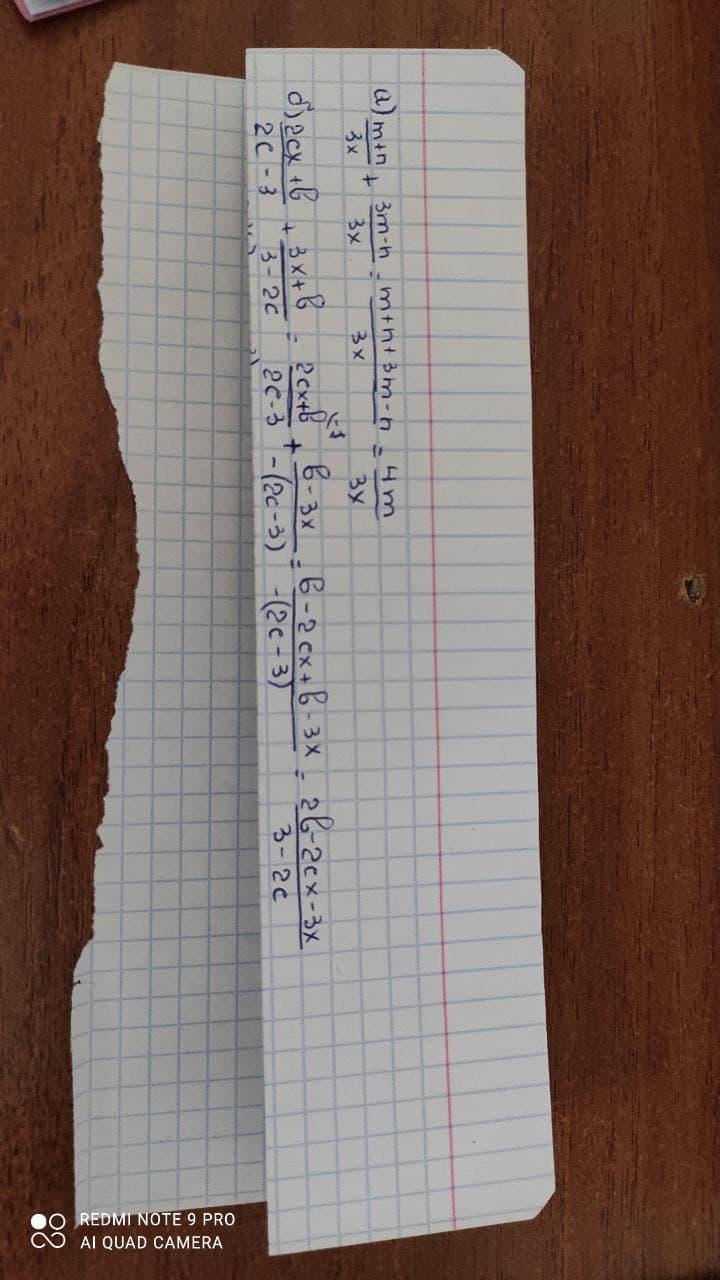 а) m+n/3x + 3m-n/3x = m+n+3m-n/3x = 4m/3x
б) 2cx+b/2c-3 + 3x+b/3-2c = 2cx+b/2c-3 + b-3x/-(2c-3) = b-2cx+b-3x/-(2c-3) = 2b-2cx-3x/3-2c
REDMI NOTE 9 PRO
AI QUAD CAMERA